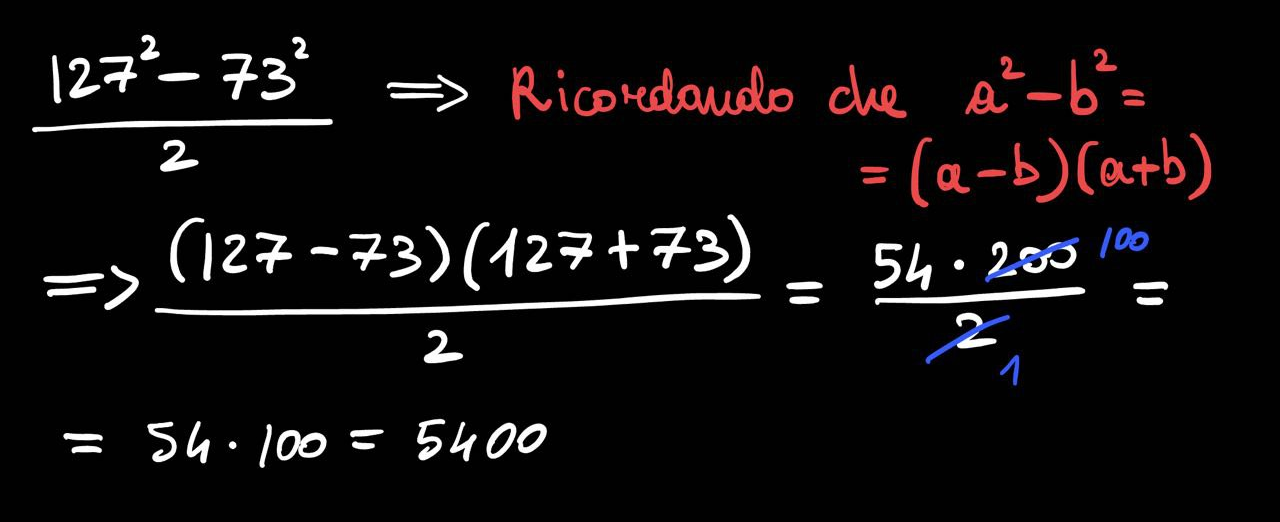 (127² − 73²)/2 ⟹ Ricordando che a² − b² =
= (a − b)(a + b)
=> (127 − 73)(127 + 73)/2 = 54 · 200/2 = 100 1
= 54 · 100 = 5400